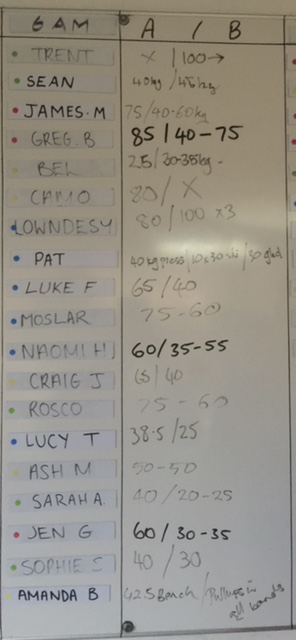 6AM A / B
TRENT X / 100→
SEAN 40kg / 45kg
JAMES.M 75/40-60kg
GREG.B 85/40-75
BEL 25/30-35kg-
CAMO 80/X
LOWNDESY 80/100 x3
PAT 40kg press/10x30
LUKE F 65/40
MOSLAR 75-60
NAOMI H 60/35-55
CRAIG J 65/40
ROSCO 75-60
LUCY T 38.5/25
ASH M 50-50
SARAH A. 40/20-25
JEN G 60/30-35
SOPHIE S 40/30
AMANDA B 42.5 Bench / Pullups in
all bands